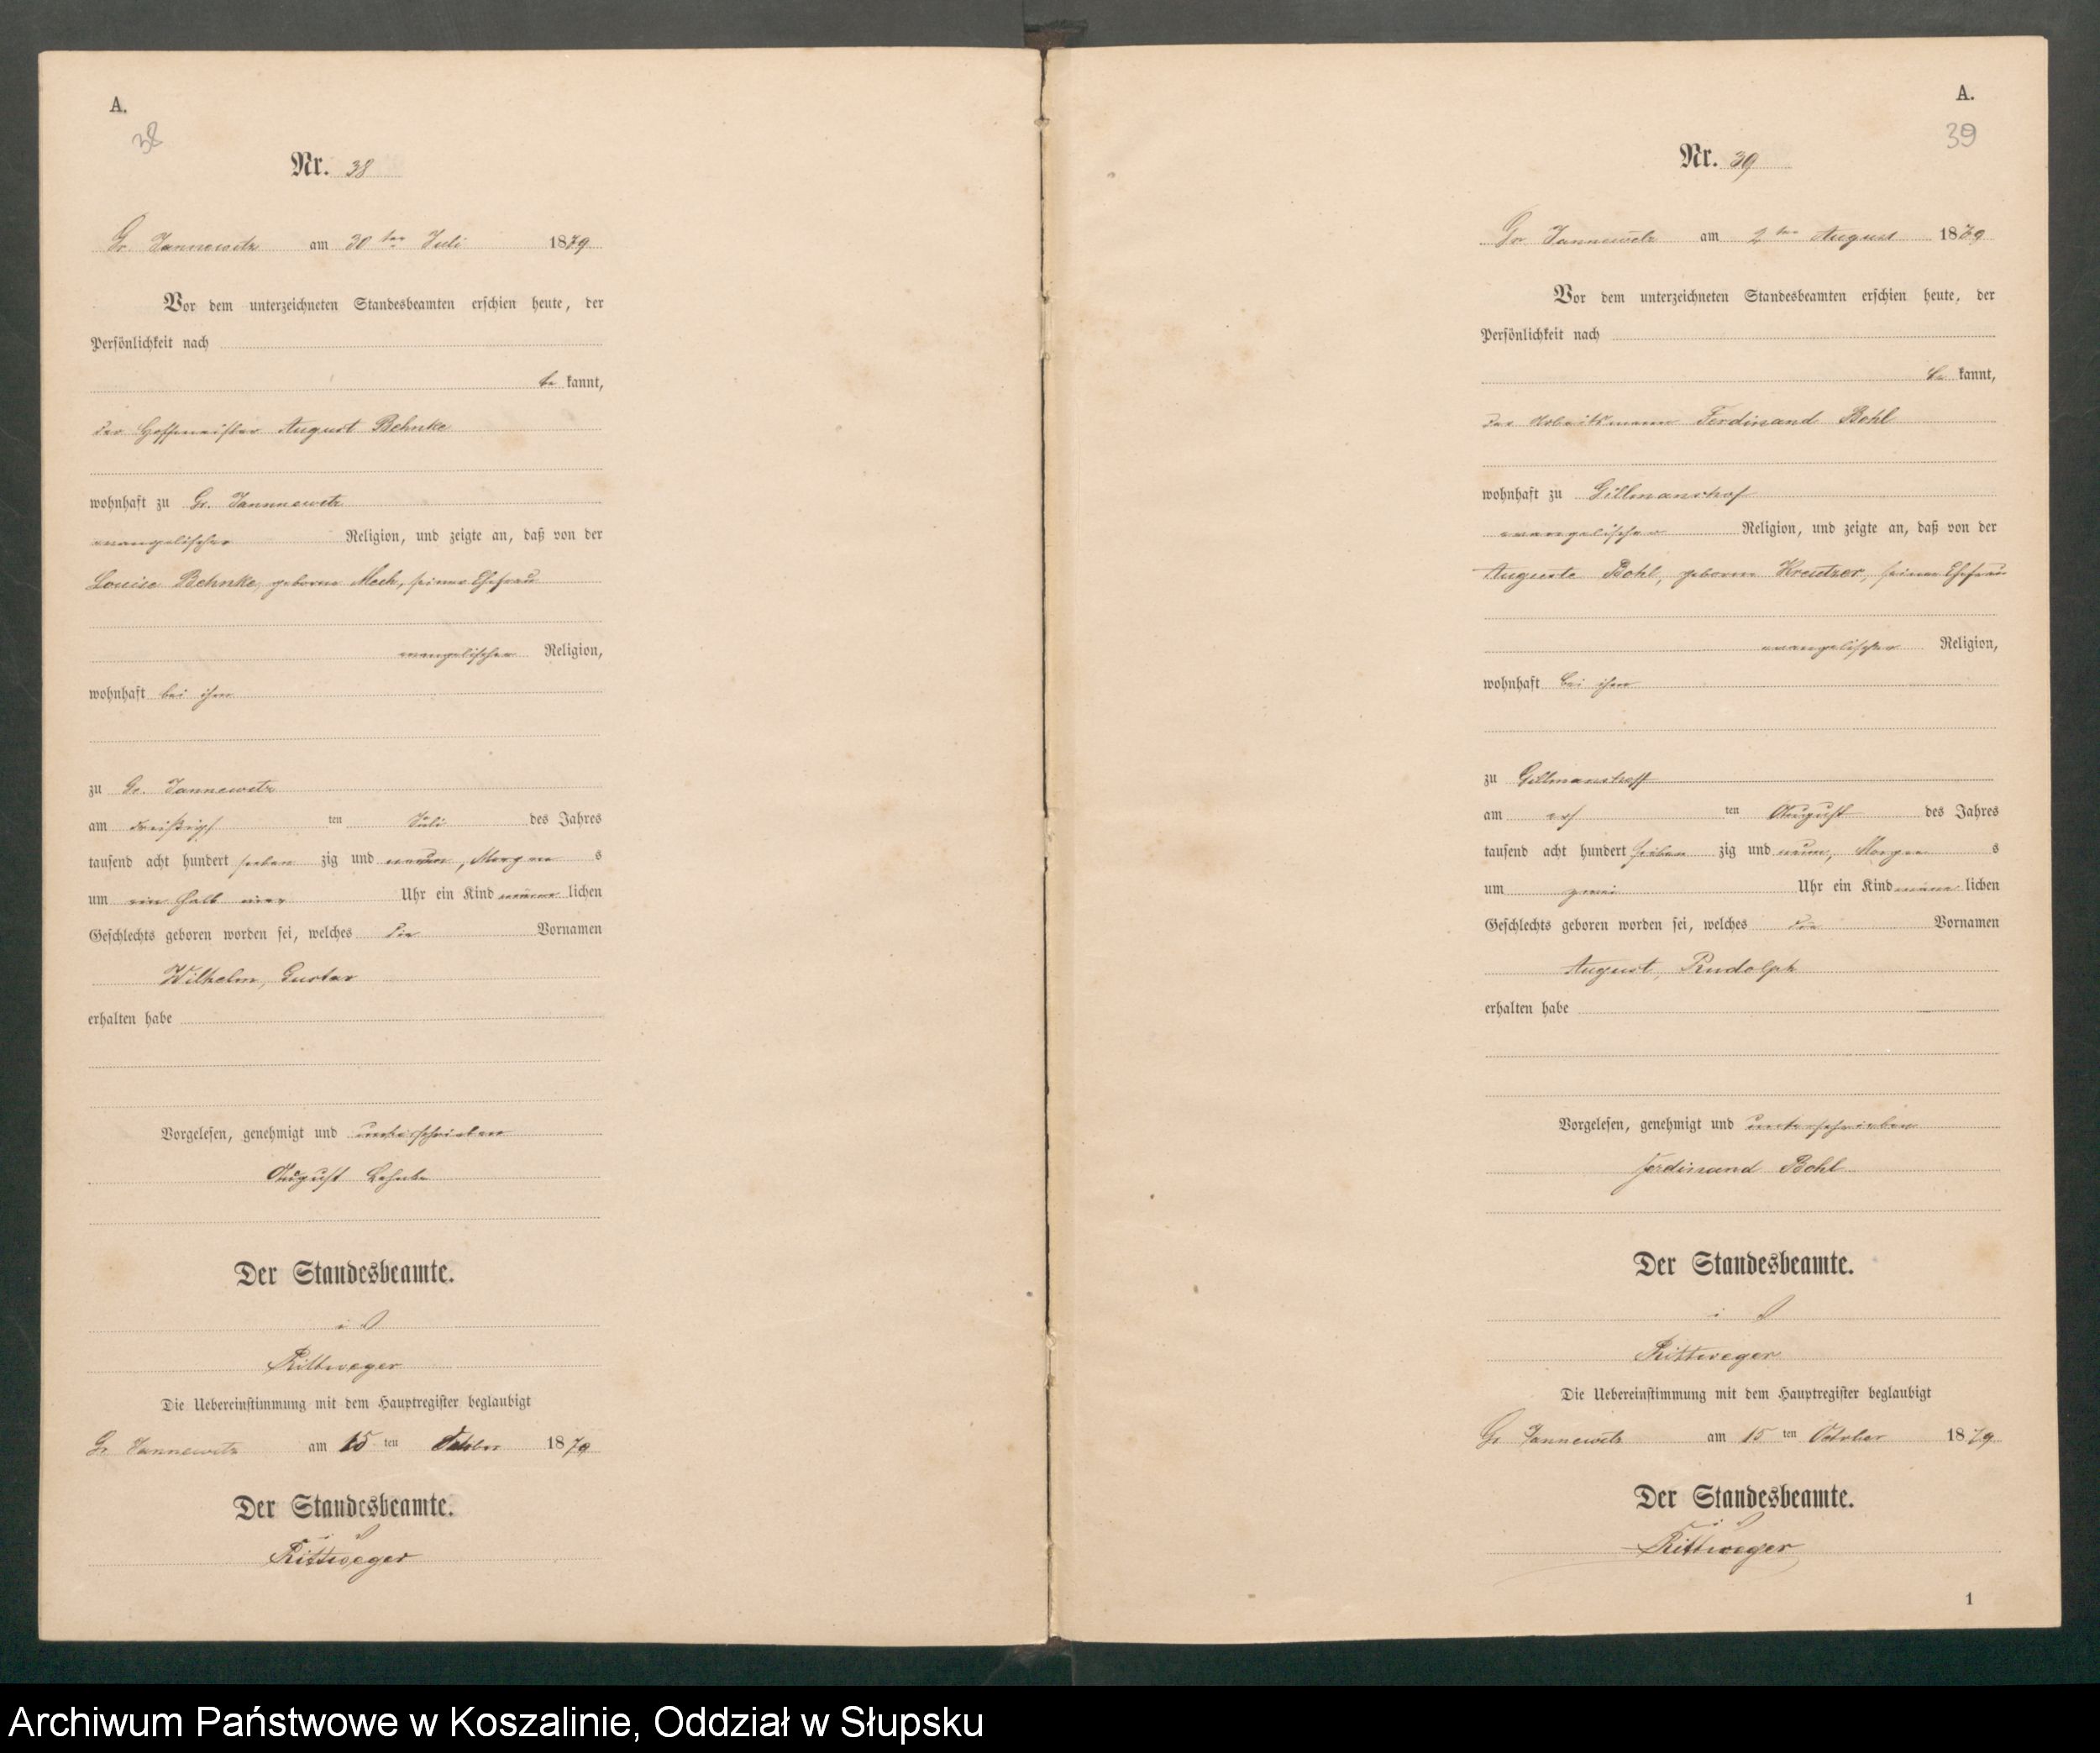 A.
38
Nr. 38
Gr. Jannewitz am 30ten Juli 1879
Vor dem unterzeichneten Standesbeamten erschien heute, der
Persönlichkeit nach
be kannt,
der Hoffmeister August Behnke
wohnhaft zu Gr. Jannewitz
evangelischer Religion, und zeigte an, daß von der
Louise Behnke, geborne Mech, seiner Ehefrau
evangelischer Religion,
wohnhaft bei ihm
zu Gr. Jannewitz
am dreißigst ten Juli des Jahres
tausend acht hundert sieben zig und neun, Morgen s
um ein halb vier Uhr ein Kind männ lichen
Geschlechts geboren worden sei, welches die Vornamen
Wilhelm, Gustav
erhalten habe
Vorgelesen, genehmigt und unterschrieben
August Behnke
Der Standesbeamte.
i V
Rittweger
Die Uebereinstimmung mit dem Hauptregister beglaubigt
Gr. Jannewitz am 15 ten October 1879
Der Standesbeamte.
i V
Rittweger
A.
39
Nr. 39
Gr. Jannewitz am 2ten August 1879
Vor dem unterzeichneten Standesbeamten erschien heute, der
Persönlichkeit nach
be kannt,
der Arbeitsmann Ferdinand Bohl
wohnhaft zu Gillmanshof
evangelischer Religion, und zeigte an, daß von der
Auguste Bohl, geborne Kreutzer, seiner Ehefrau
evangelischer Religion,
wohnhaft bei ihm
zu Gillmanshoff
am erst ten August des Jahres
tausend acht hundert sieben zig und neun, Morgen s
um zwei Uhr ein Kind männ lichen
Geschlechts geboren worden sei, welches die Vornamen
August, Rudolph
erhalten habe
Vorgelesen, genehmigt und unterschrieben
Ferdinand Bohl
Der Standesbeamte.
i V
Rittweger
Die Uebereinstimmung mit dem Hauptregister beglaubigt
Gr. Jannewitz am 15 ten October 1879
Der Standesbeamte.
i V
Rittweger
1
Archiwum Państwowe w Koszalinie, Oddział w Słupsku